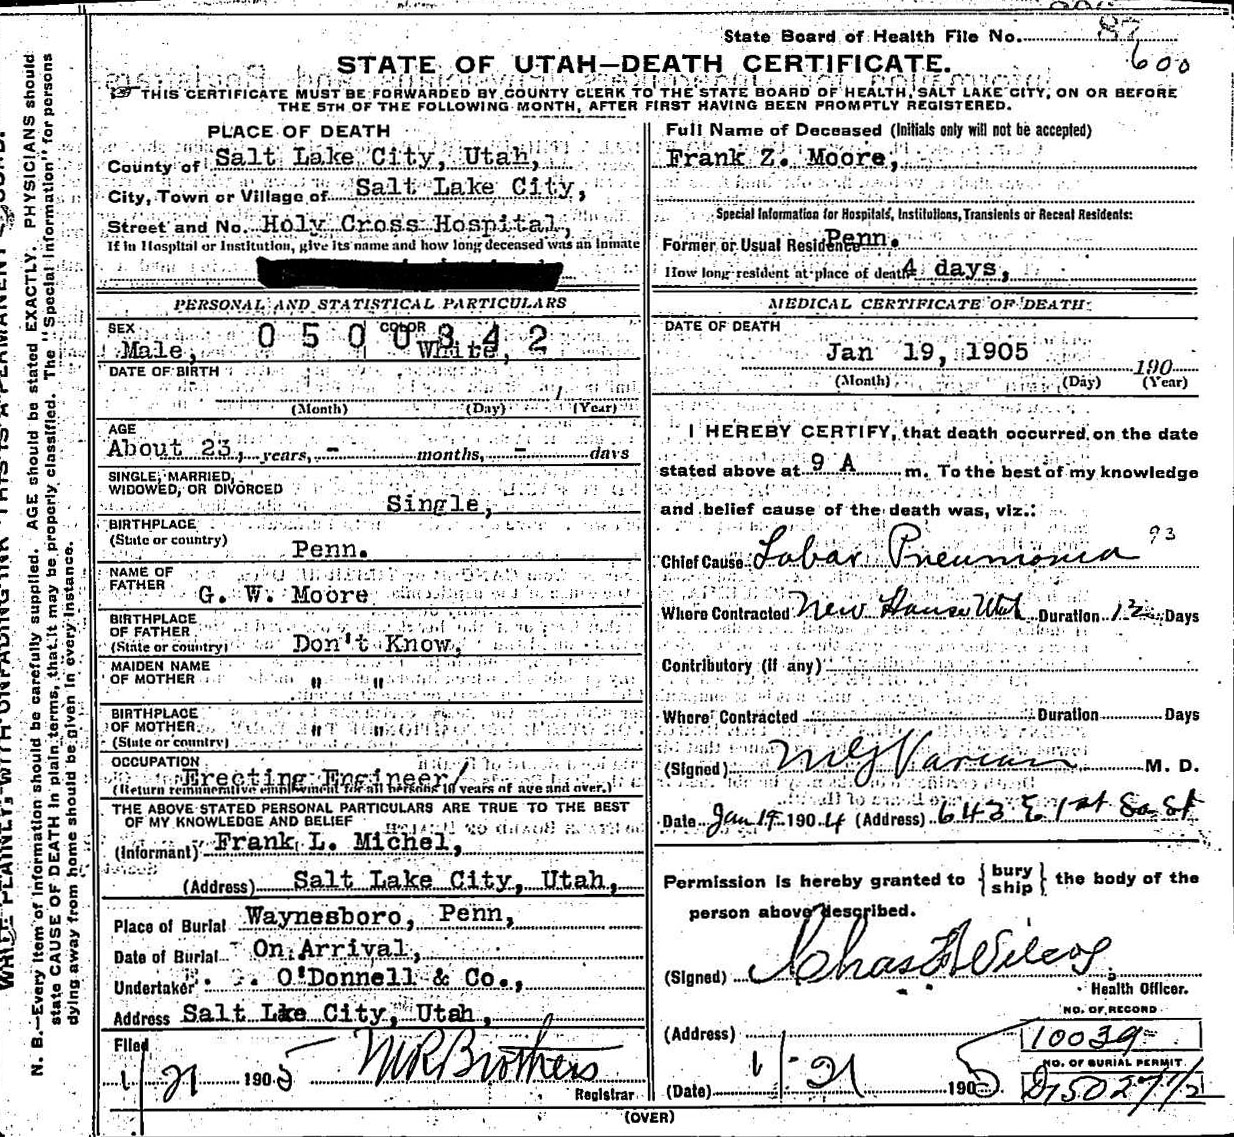 State Board of Health File No. 87
600
STATE OF UTAH—DEATH CERTIFICATE.
THIS CERTIFICATE MUST BE FORWARDED BY COUNTY CLERK TO THE STATE BOARD OF HEALTH, SALT LAKE CITY, ON OR BEFORE
THE 5TH OF THE FOLLOWING MONTH, AFTER FIRST HAVING BEEN PROMPTLY REGISTERED.
PLACE OF DEATH
County of Salt Lake City, Utah,
City, Town or Village of Salt Lake City,
Street and No. Holy Cross Hospital,
If in Hospital or Institution, give its name and how long deceased was an inmate
PERSONAL AND STATISTICAL PARTICULARS
SEX
Male,
COLOR
White,
0500342
DATE OF BIRTH
(Month) (Day) (Year)
AGE
About 23, years, - months, - days
SINGLE, MARRIED,
WIDOWED, OR DIVORCED
Single,
BIRTHPLACE
(State or country)
Penn.
NAME OF
FATHER
G. W. Moore
BIRTHPLACE
OF FATHER
(State or country)
Don't Know,
MAIDEN NAME
OF MOTHER
" "
BIRTHPLACE
OF MOTHER
(State or country)
" "
OCCUPATION
Erecting Engineer/
(Return remunerative employment for all persons 10 years of age and over.)
THE ABOVE STATED PERSONAL PARTICULARS ARE TRUE TO THE BEST
OF MY KNOWLEDGE AND BELIEF
(Informant) Frank L. Michel,
(Address) Salt Lake City, Utah,
Place of Burial Waynesboro, Penn,
Date of Burial On Arrival,
Undertaker O'Donnell & Co.,
Address Salt Lke City, Utah,
Filed
1/21 1905 M R Brothers
Registrar
Full Name of Deceased (Initials only will not be accepted)
Frank Z. Moore,
Special Information for Hospitals, Institutions, Transients or Recent Residents:
Former or Usual Residence Penn.
How long resident at place of death 4 days,
MEDICAL CERTIFICATE OF DEATH
DATE OF DEATH
Jan 19, 1905 190
(Month) (Day) (Year)
I HEREBY CERTIFY, that death occurred on the date
stated above at 9 A m. To the best of my knowledge
and belief cause of the death was, viz.:
Chief Cause Lobar Pneumonia 93
Where Contracted New House Utah Duration 12 Days
Contributory (if any)
Where Contracted Duration Days
(Signed) Varian M. D.
Date Jan 19 1904 (Address) 643 E 1st So St
Permission is hereby granted to {bury ship} the body of the
person above described.
(Signed) Chas F Wilcox
Health Officer.
(Address)
NO. OF RECORD
10039
NO. OF BURIAL PERMIT
(Date) 1/21 1905
(OVER)
N. B.—Every item of information should be carefully supplied. AGE should be stated EXACTLY. PHYSICIANS should
state CAUSE OF DEATH in plain terms, that it may be properly classified. The "Special Information" for persons
dying away from home should be given in every instance.